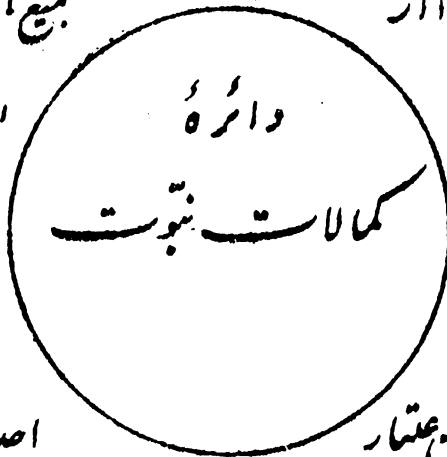 جمیع
دائرۂ
کمالات نبّوت
اعتبار